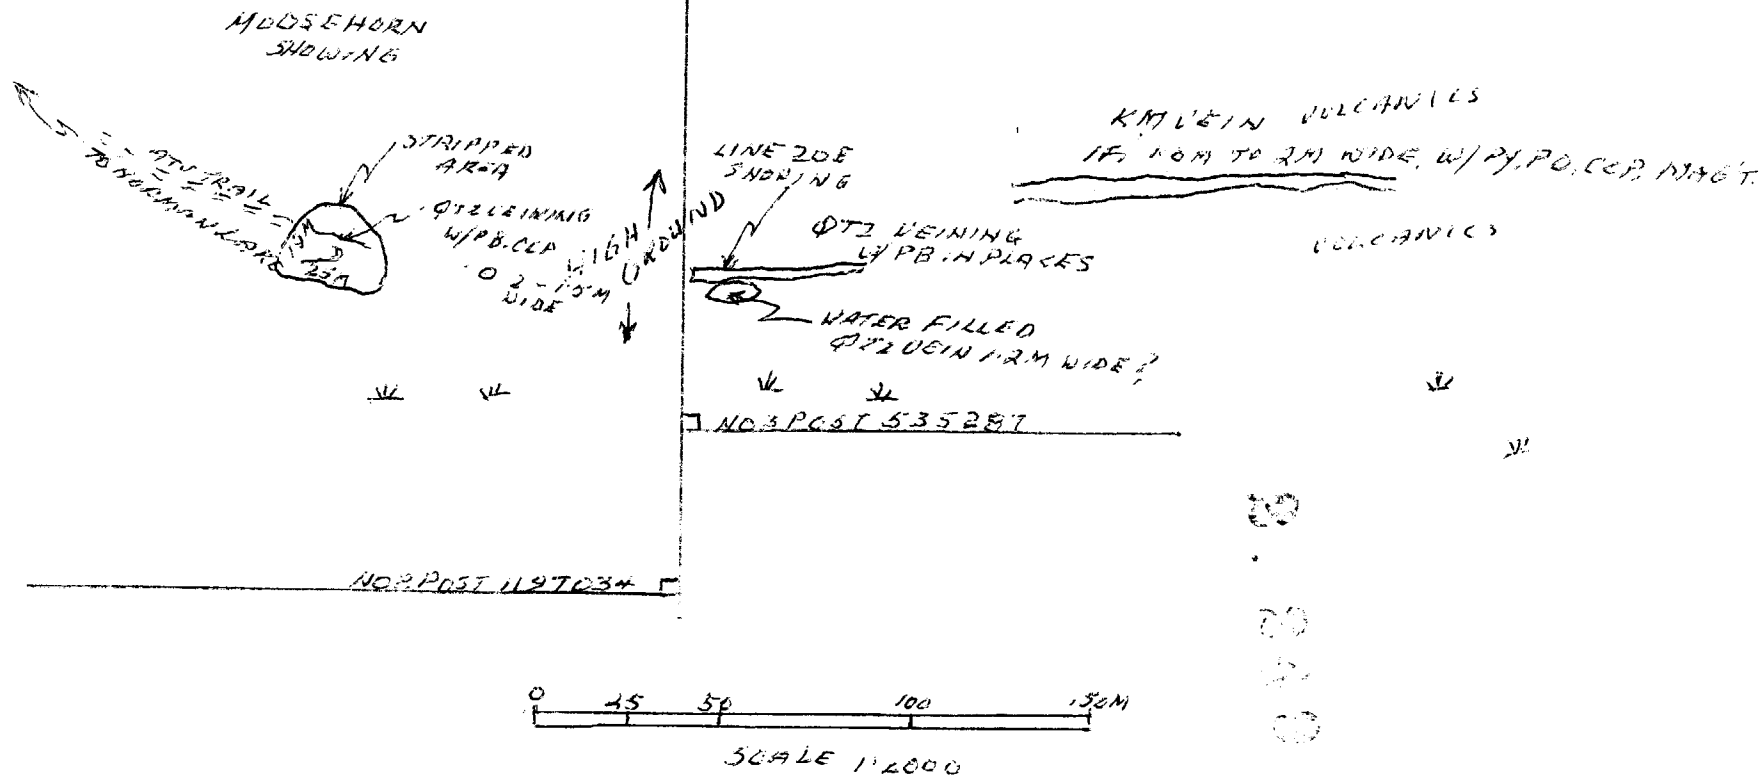 MOOSEHORN
SHOWING
ATV TRAIL
TO NORMAN LAKE
STRIPPED
AREA
QTZ VEINING
W/PB.CCP
0.2-1.5M
WIDE
HIGH
GROUND
LINE 20E
SHOWING
QTZ VEINING
W/ PB IN PLACES
WATER FILLED
QTZ VEIN 1.2M WIDE?
KM VEIN VOLCANICS
TO 2M WIDE, W/PY, PO, CCP, MAGT.
VOLCANICS
NO 3 POST 535287
NO 2 POST 1197034
0 25 50 100 150M
SCALE 1:2000